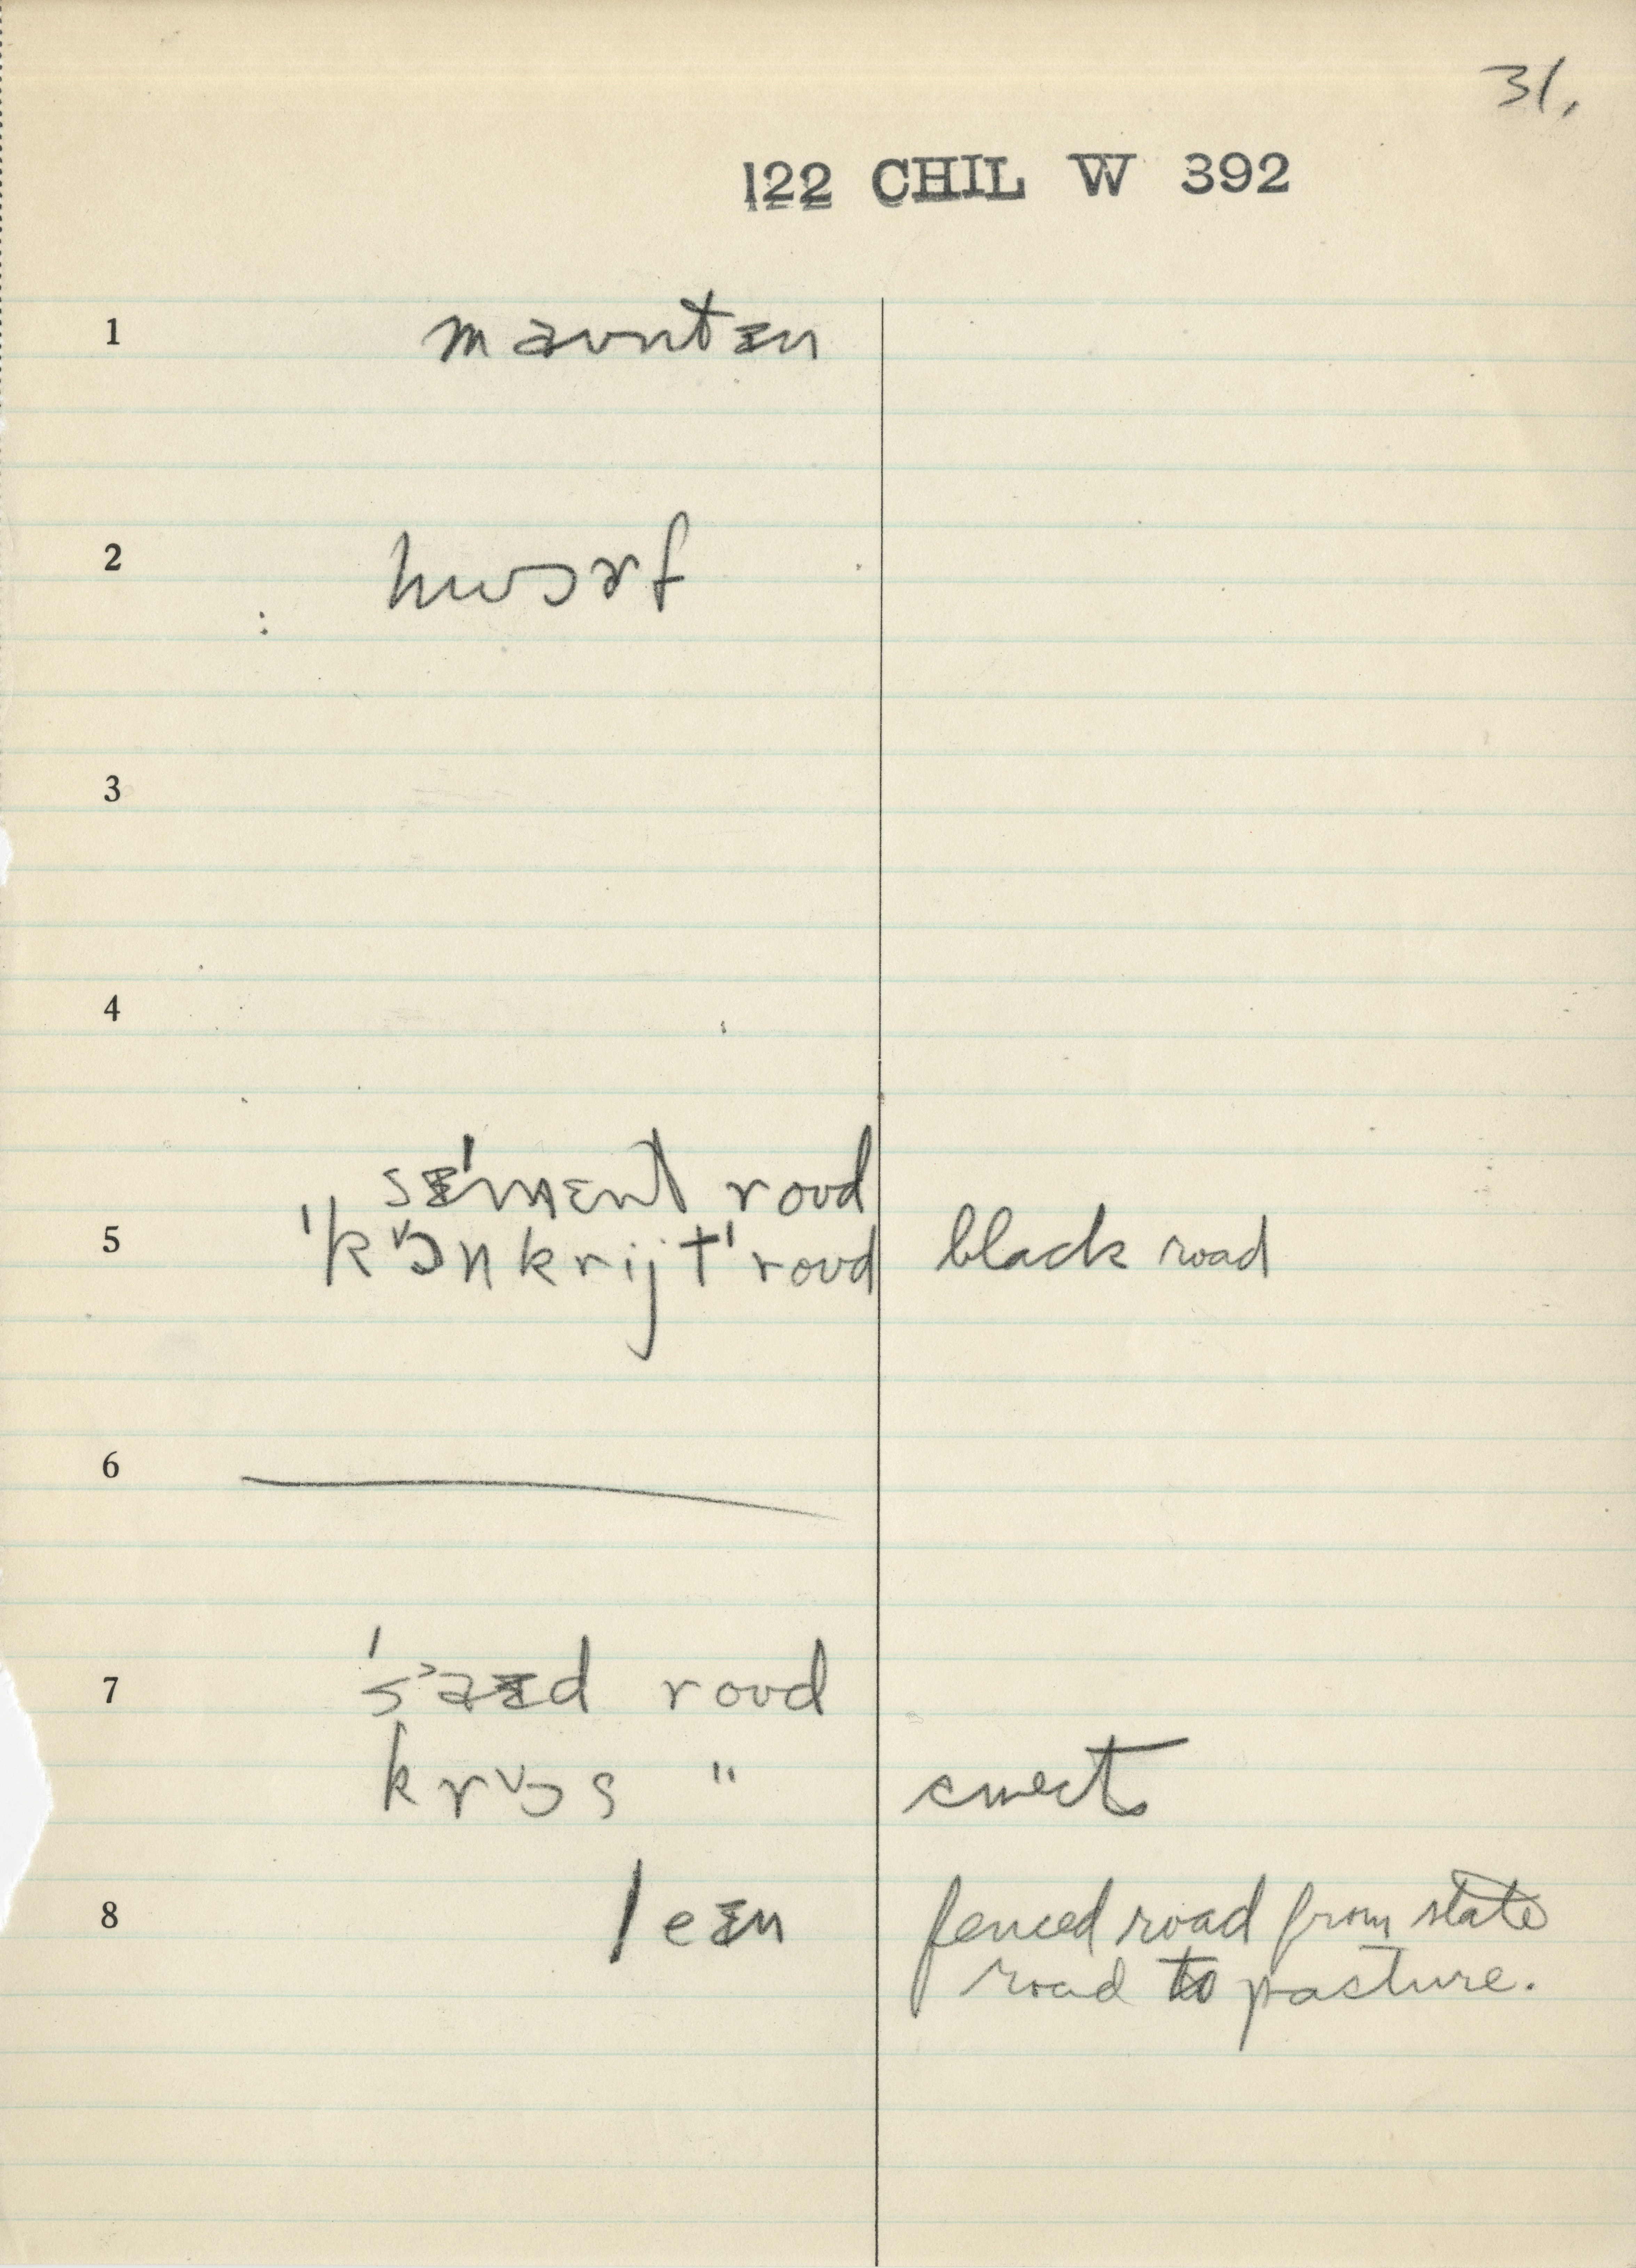 31.
122 CHIL W 392
1 maʊntᵻn
2 hwɔrf
3
4
sᵻ'mɛnt roʊd
5 'kɔ˅nkrijt'roʊd black road
6
7 'sa˃ᵻd roʊd
krɔ˅s "
8 leᵻn fenced road from state
road to pasture.